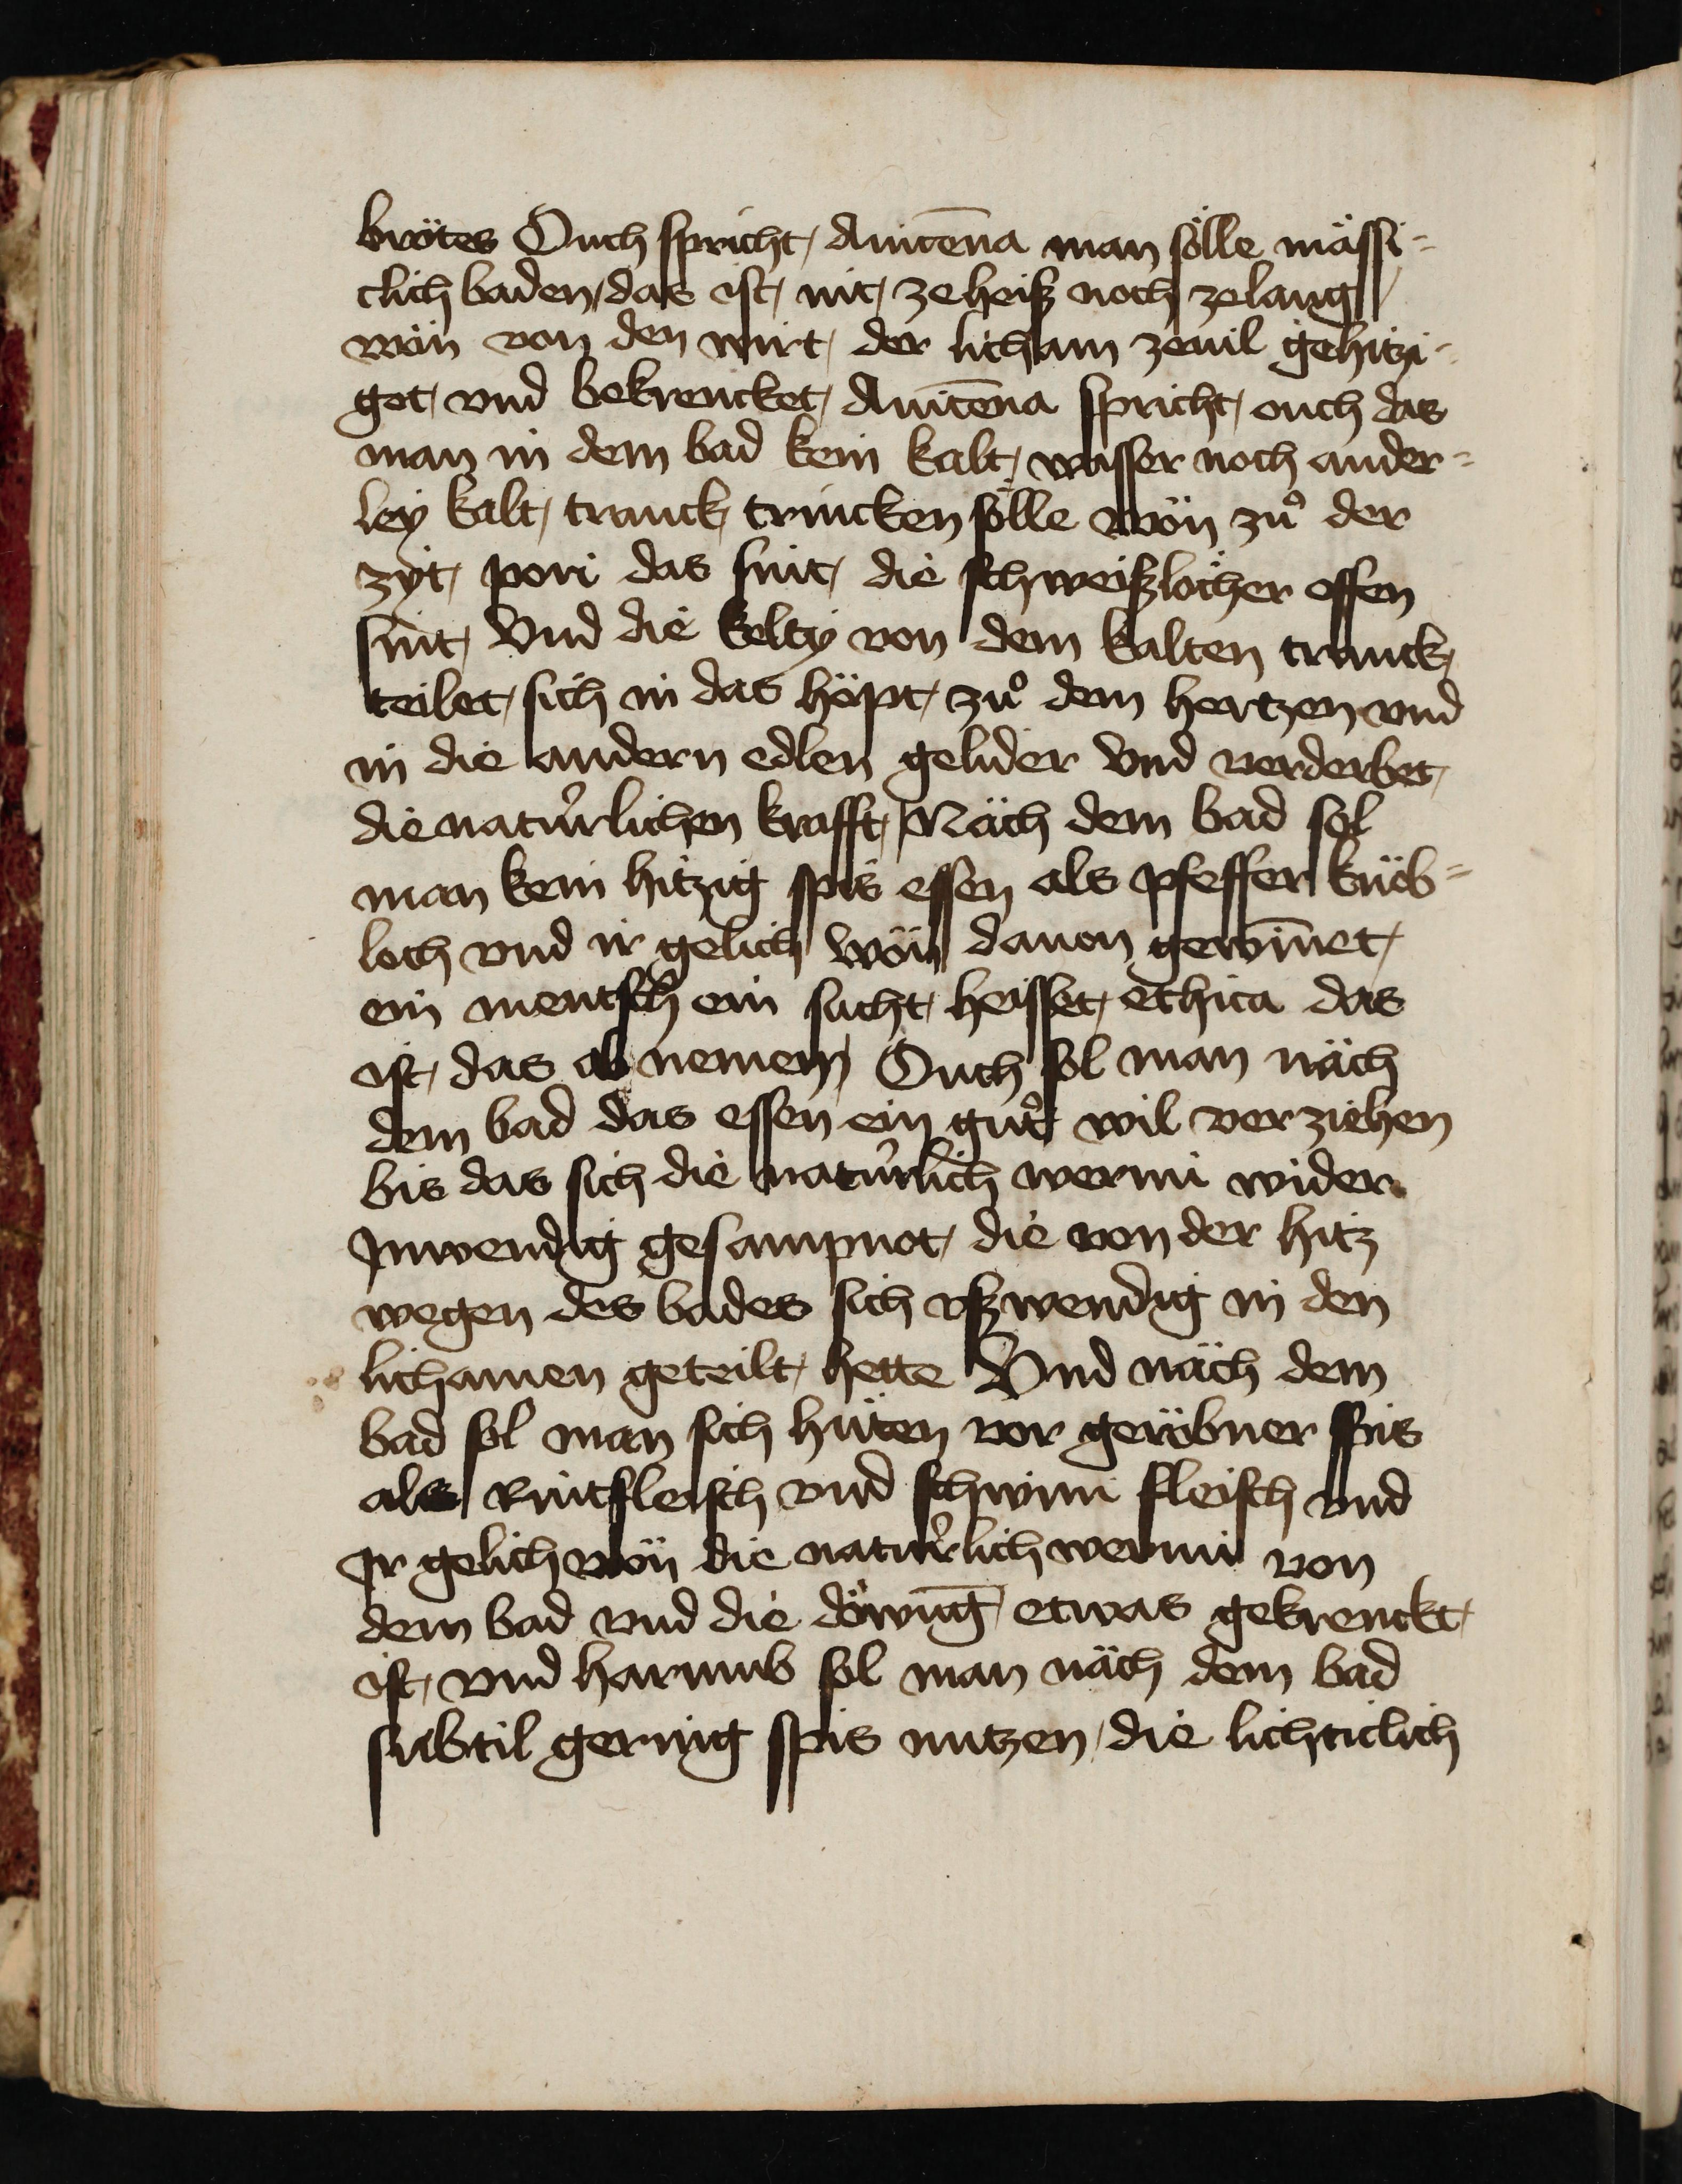 brötes Ouch spricht Auicēna man sölle mässi=
clich baden / das ist nit ze heiß noch zelang /
wön von den wirt der licham zeuil gehitzi-
get vnd bekrencket Auicēna spricht ouch das
man in dem bad kein kalt wasser noch ander=
ley kalt tranck trincken sölle wön zuͦ der
zyt pori das sint die schweißlöcher offen
sint Vnd die kelty von dem kalten tranck
teilet sich in das höpt zuͦ dem hertzen vnd
in die andern edlen gelider Vnd verderbet
die natuͤrlichen krafft Näch dem bad sol
man kein hitzig spis essen als pfeffer knöb=
loch vnd ir gelich wön dauon gewīnet
ein mentsch ein sucht heisset ethica das
ist das ab nemen Ouch sol man näch
dem bad das essen ein guͦt wil verziehen
bis das sich die natuͤrlich wermi wider
Inwendig gesampnot die von der hitz
wegen des bades sich vßwendig in den
lichamen geteilt hette Vnd näch dem
bad sol man sich huͤten vor geröbner spis
als Rintfleisch vnd schwini fleisch vnd
Ir gelich wön die natuͤrlich wermi von
dem bad vnd die döwūg etwas gekrenckt
ist vnd harumb sol man näch dem bad
subtil gering spis nutzen / die lichticlich